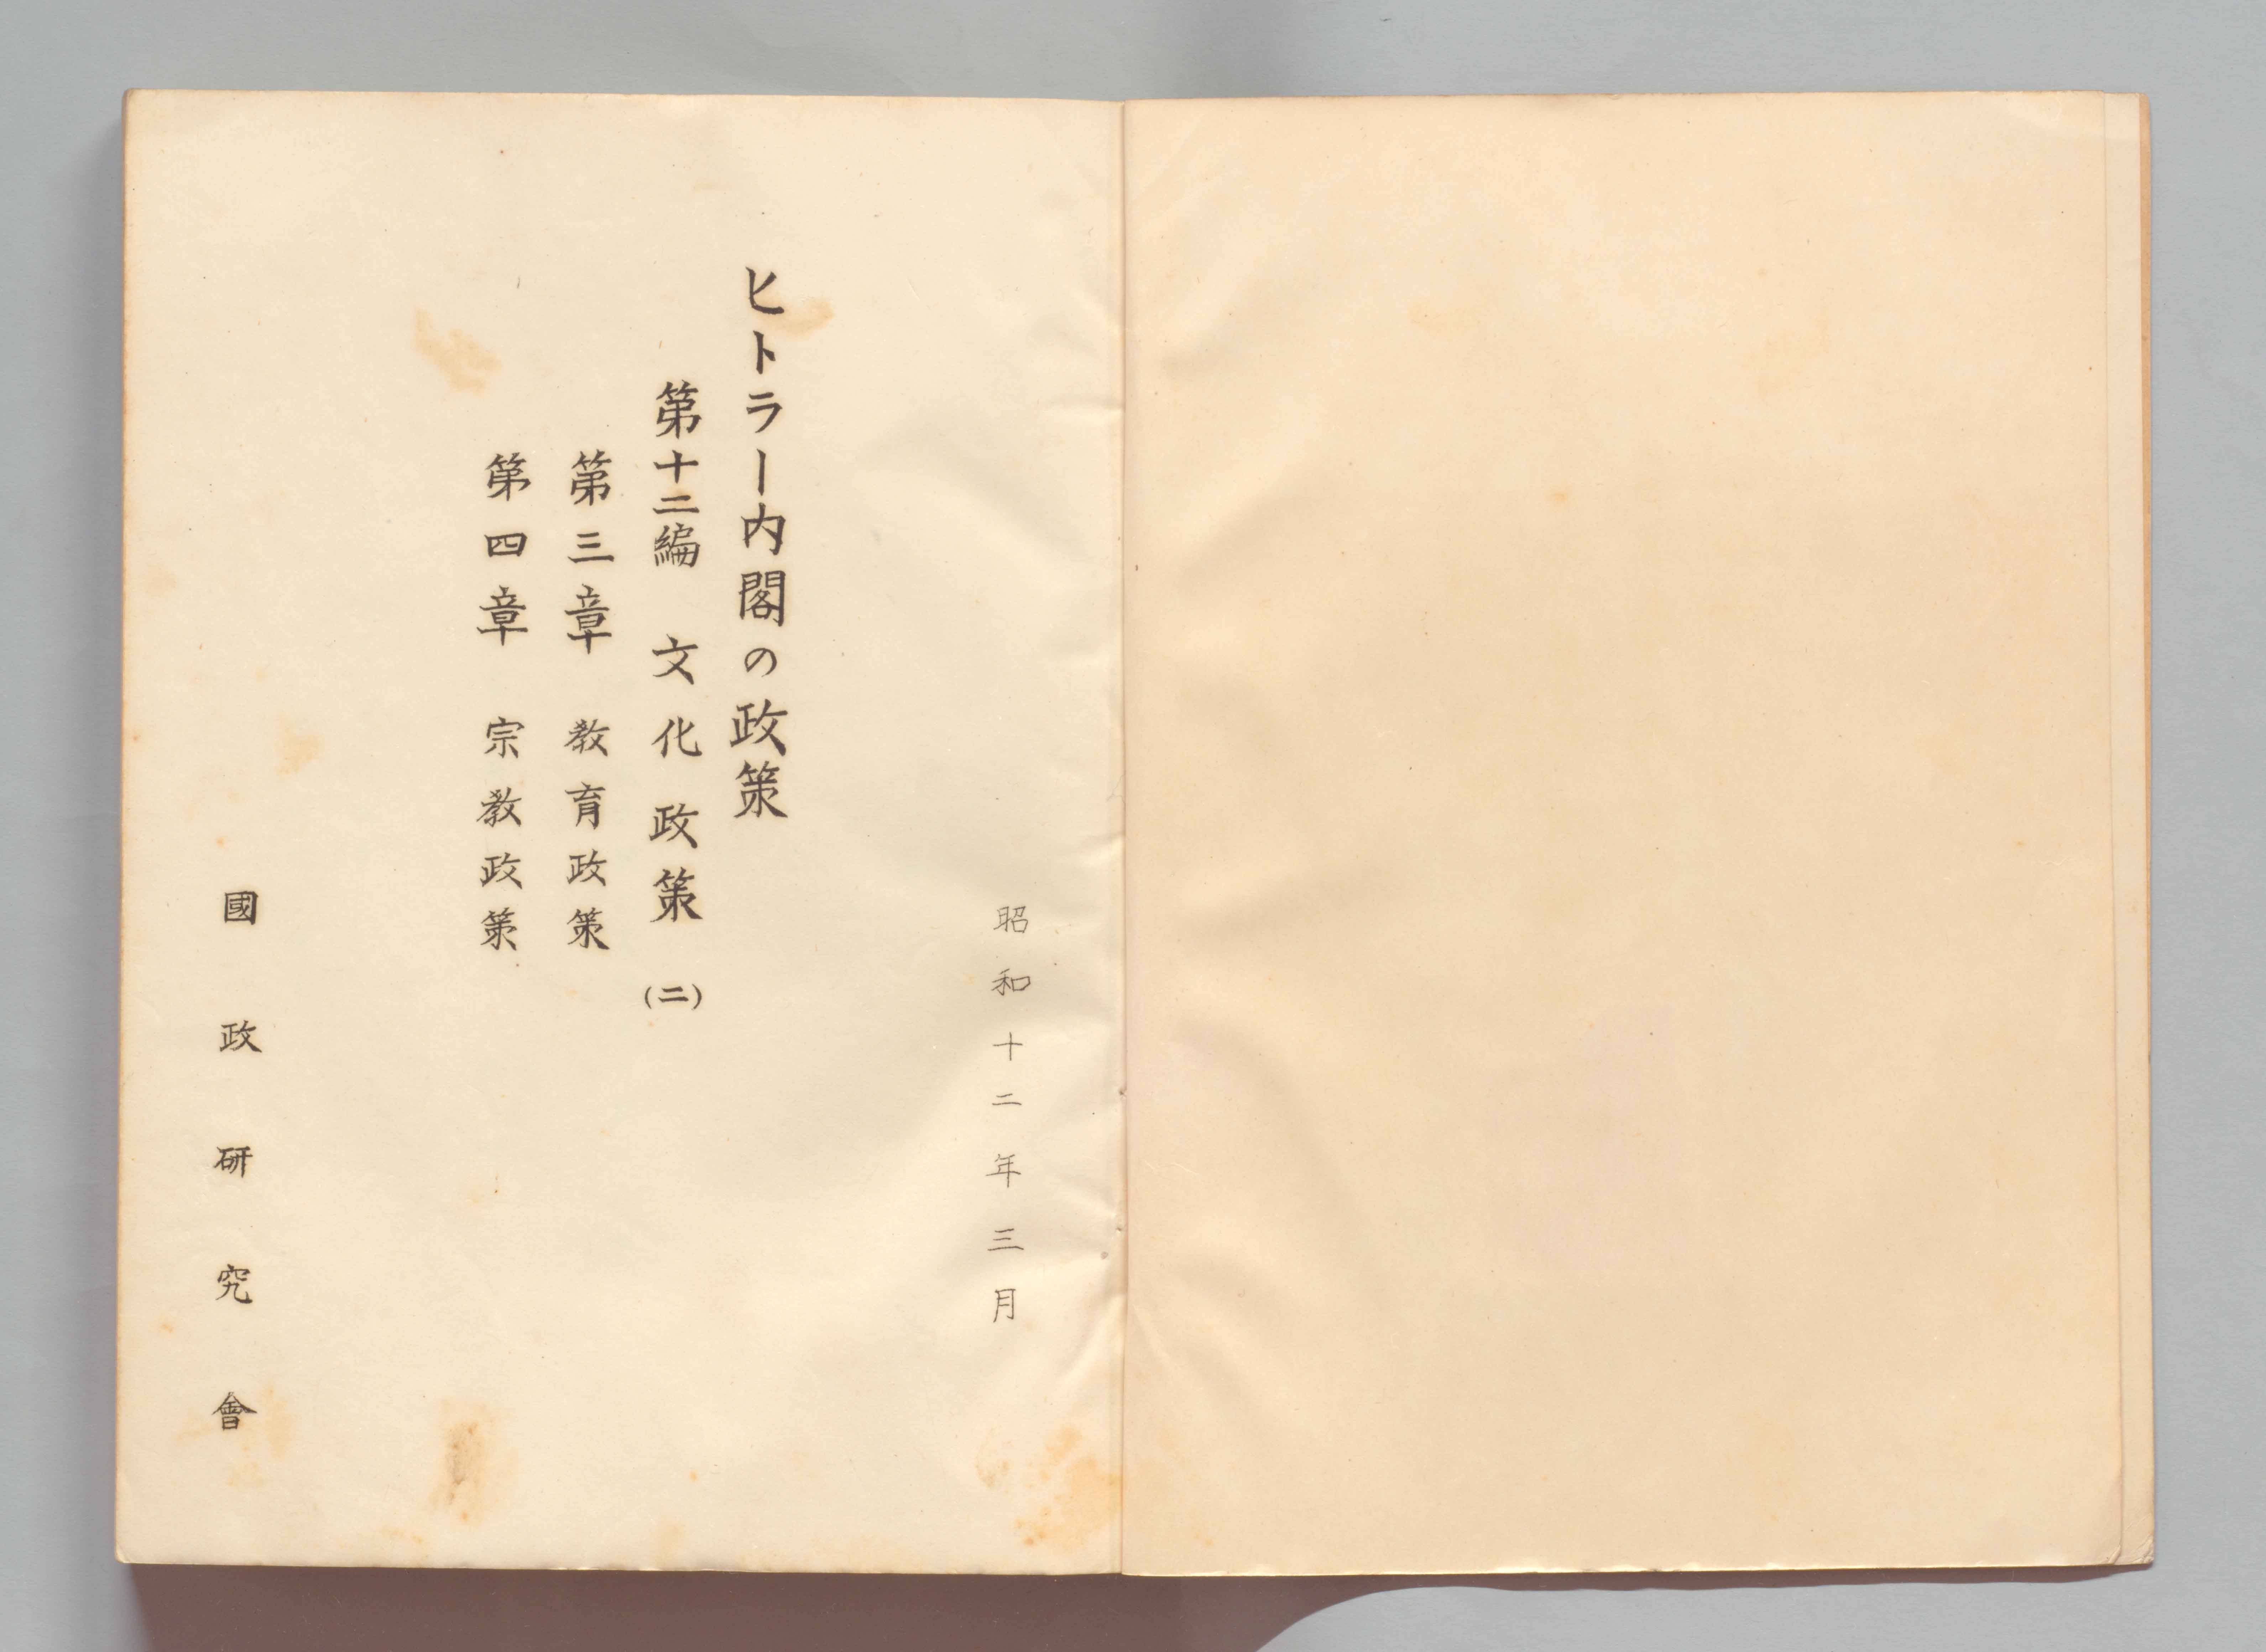 昭和十二年三月
ヒトラー内閣の政策
第十二編 文化政策 (二)
第三章 教育政策
第四章 宗教政策
國政研究會